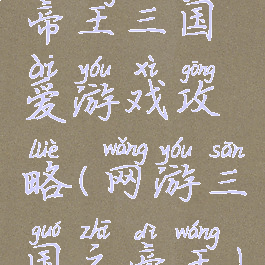 帝王三国
ài yóu xì gōng
爱游戏攻
lüè wǎng yóu sān
略(网游三
guó zhī dì wáng
国之帝王)